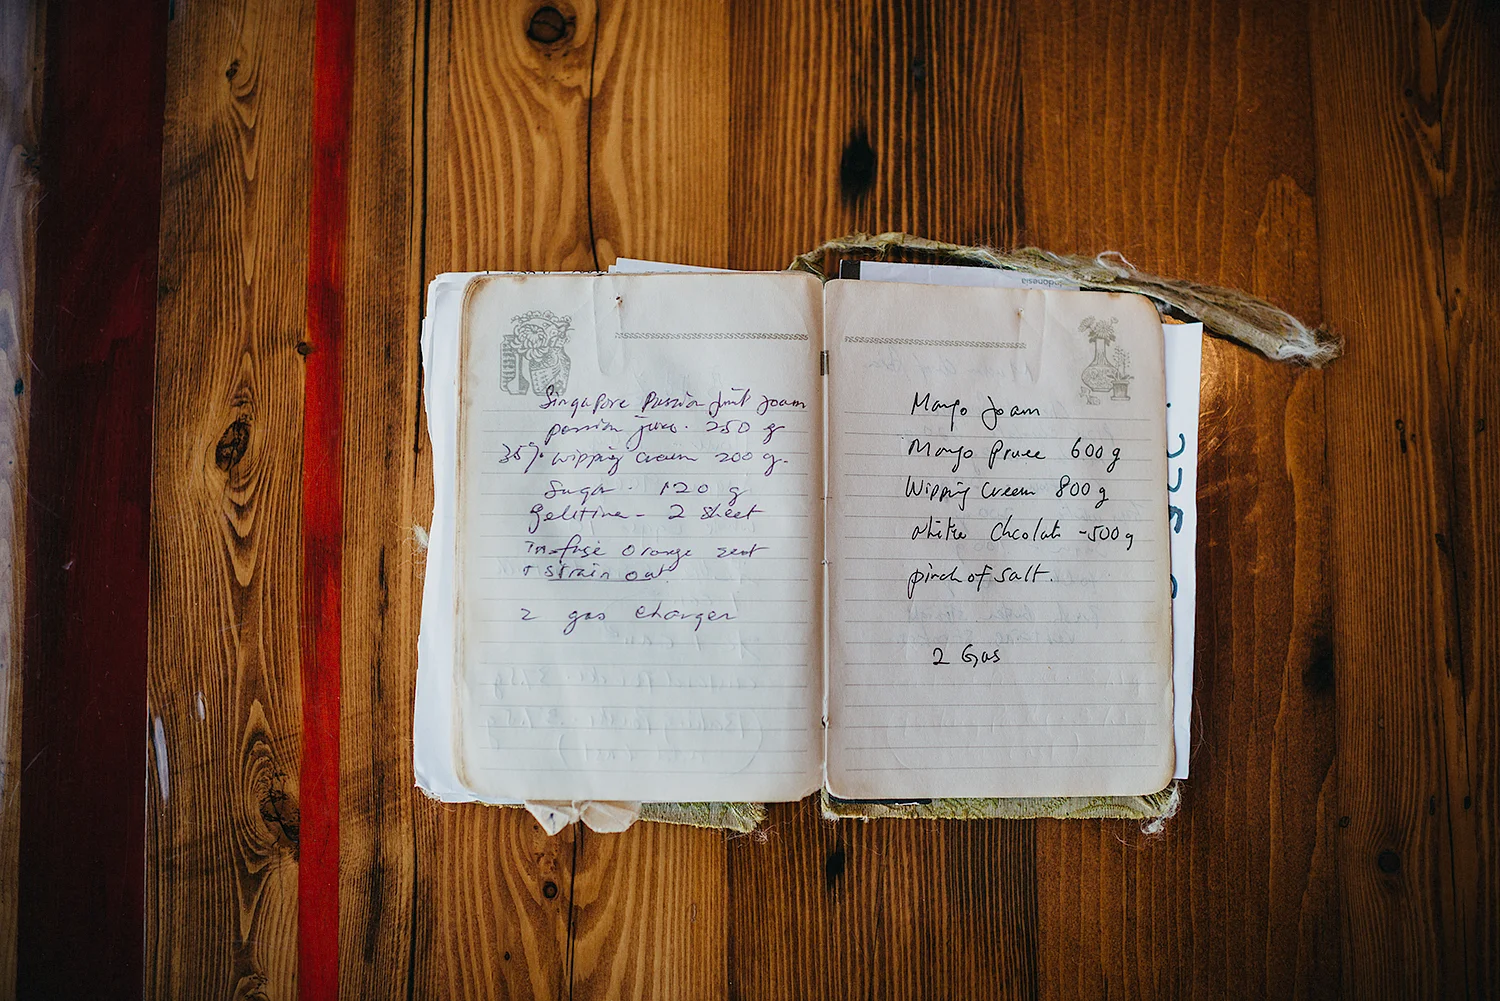 Singapore passion fruit foam
passion juice. 250 g
35% wipping cream 200 g.
Sugar - 120 g
gelitine - 2 sheet
infuse orange zest
+ strain out.
2 gas charger
Indonesia
Mango foam
Mango Pruee 600 g
Wipping cream 800 g
White Chcolate - 500 g
pinch of salt.
2 Gas